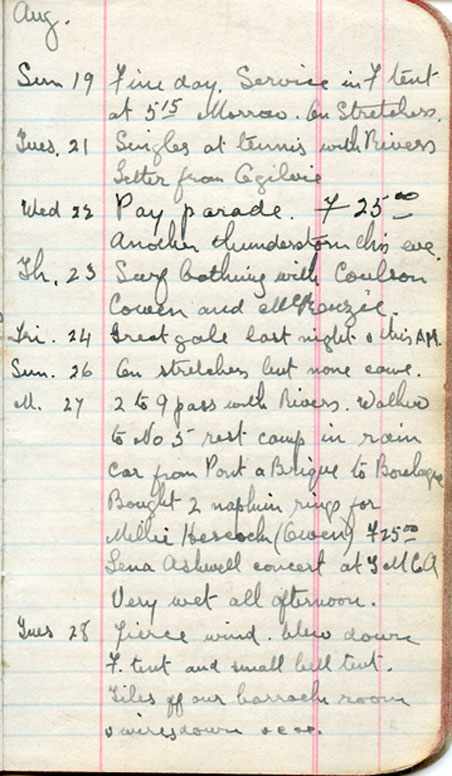 Aug.
Sun 19 Fine day. Service in F tent
at 5 15 Morrow. On Stretchers.
Tues. 21 Singles at tennis with Rivers
Letter from Ogilvie
Wed 22 Pay parade. F 25 00
Another thunderstorm this eve.
Th. 23 Surf bathing with Coulson
Cowen and McKenzie.
Fri. 24 Great gale last night & this A.M.
Sun. 26 On stretchers but none came.
M. 27 2 to 9 pass with Rivers. Walked
to No 5 rest camp in rain
Car from Pont a Brique to Boulogne
Bought 2 napkin rings for
Millie Hescock (Owen) F25 00
Lena Ashwell concert at Y M C A
Very wet all afternoon.
Tues 28 Fierce wind. blew down
F. tent and small bell tent.
Tiles off our barrack room
& wires down